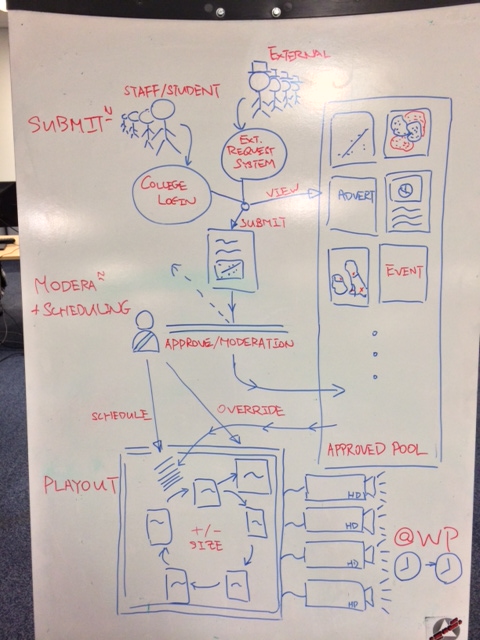 EXTERNAL
STAFF/STUDENT
SUBMIT~N
EXT.
REQUEST
SYSTEM
COLLEGE
LOGIN
VIEW
ADVERT
SUBMIT
EVENT
MODERA~N
+SCHEDULING
APPROVE/MODERATION
SCHEDULE
OVERRIDE
APPROVED POOL
PLAYOUT
+/-
SIZE
HD1
HD
HD
HD
@WP